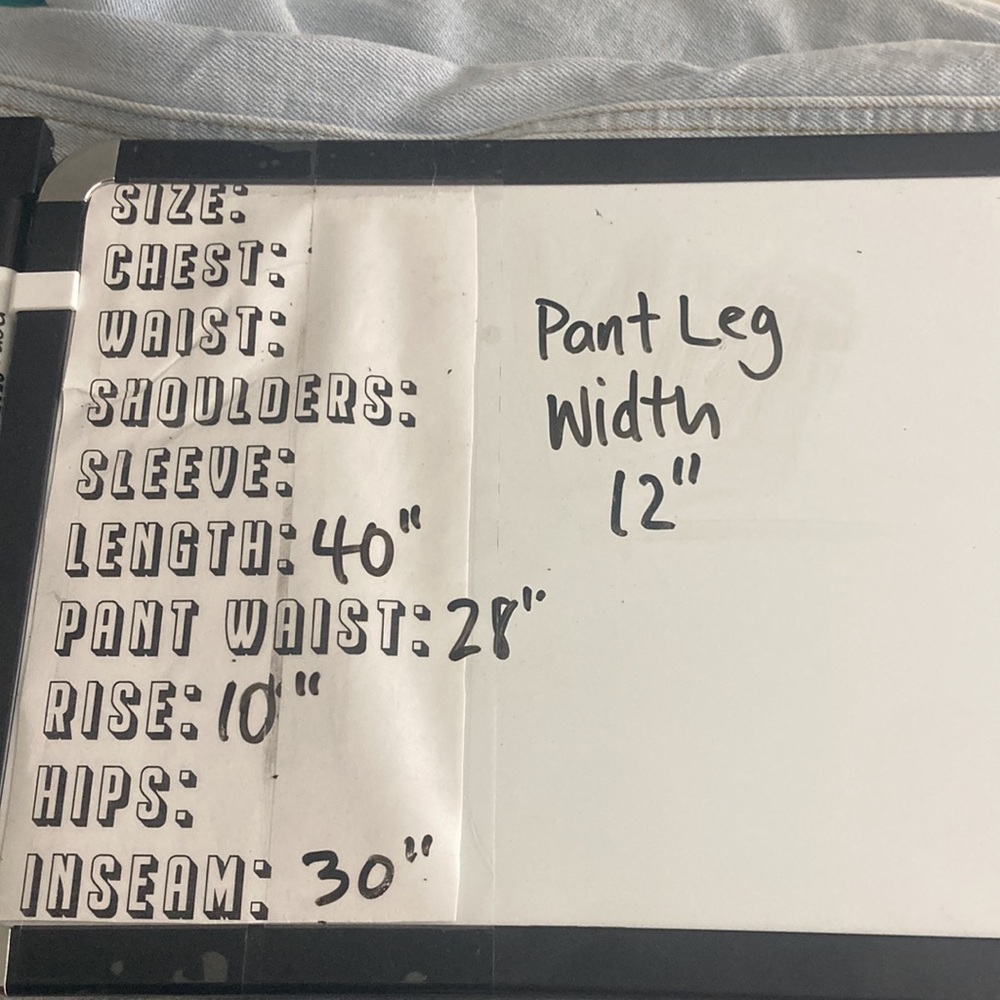 SIZE:
CHEST:
WAIST:
SHOULDERS:
SLEEVE:
LENGTH: 40"
PANT WAIST: 28"
RISE: 10"
HIPS:
INSEAM: 30"
Pant Leg
Width
12"